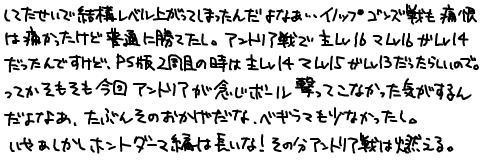 してたせいで結構レベル上がってしまったんだよなあ…イノップゴンズ戦も痛恨
は痛かったけど普通に勝てたし。アントリア戦で主Lv16マLv16ガLv14
だったんですけど、PS版2周目の時は主Lv14マLv15ガLv13だったらしいので。
ってかそもそも今回アントリアが念じボール撃ってこなかった気がするん
だよなあ、たぶんそのおかげだな、ベギラマも少なかったし。
いやあしかしホントダーマ編は長いな！その分アントリア戦は燃える。